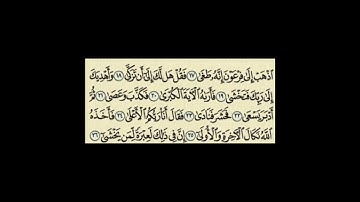 ٱذۡهَبۡ إِلَىٰ فِرۡعَوۡنَ إِنَّهُۥ طَغَىٰ ١٧ فَقُلۡ هَل لَّكَ إِلَىٰٓ أَن تَزَكَّىٰ ١٨ وَأَهۡدِيَكَ
إِلَىٰ رَبِّكَ فَتَخۡشَىٰ ١٩ فَأَرَىٰهُ ٱلۡأٓيَةَ ٱلۡكُبۡرَىٰ ٢٠ فَكَذَّبَ وَعَصَىٰ ٢١ ثُمَّ
أَدۡبَرَ يَسۡعَىٰ ٢٢ فَحَشَرَ فَنَادَىٰ ٢٣ فَقَالَ أَنَا۠ رَبُّكُمُ ٱلۡأَعۡلَىٰ ٢٤ فَأَخَذَهُ
ٱللَّهُ نَكَالَ ٱلۡأٓخِرَةِ وَٱلۡأُولَىٰٓ ٢٥ إِنَّ فِي ذَٰلِكَ لَعِبۡرَةٗ لِّمَن يَخۡشَىٰٓ ٢٦